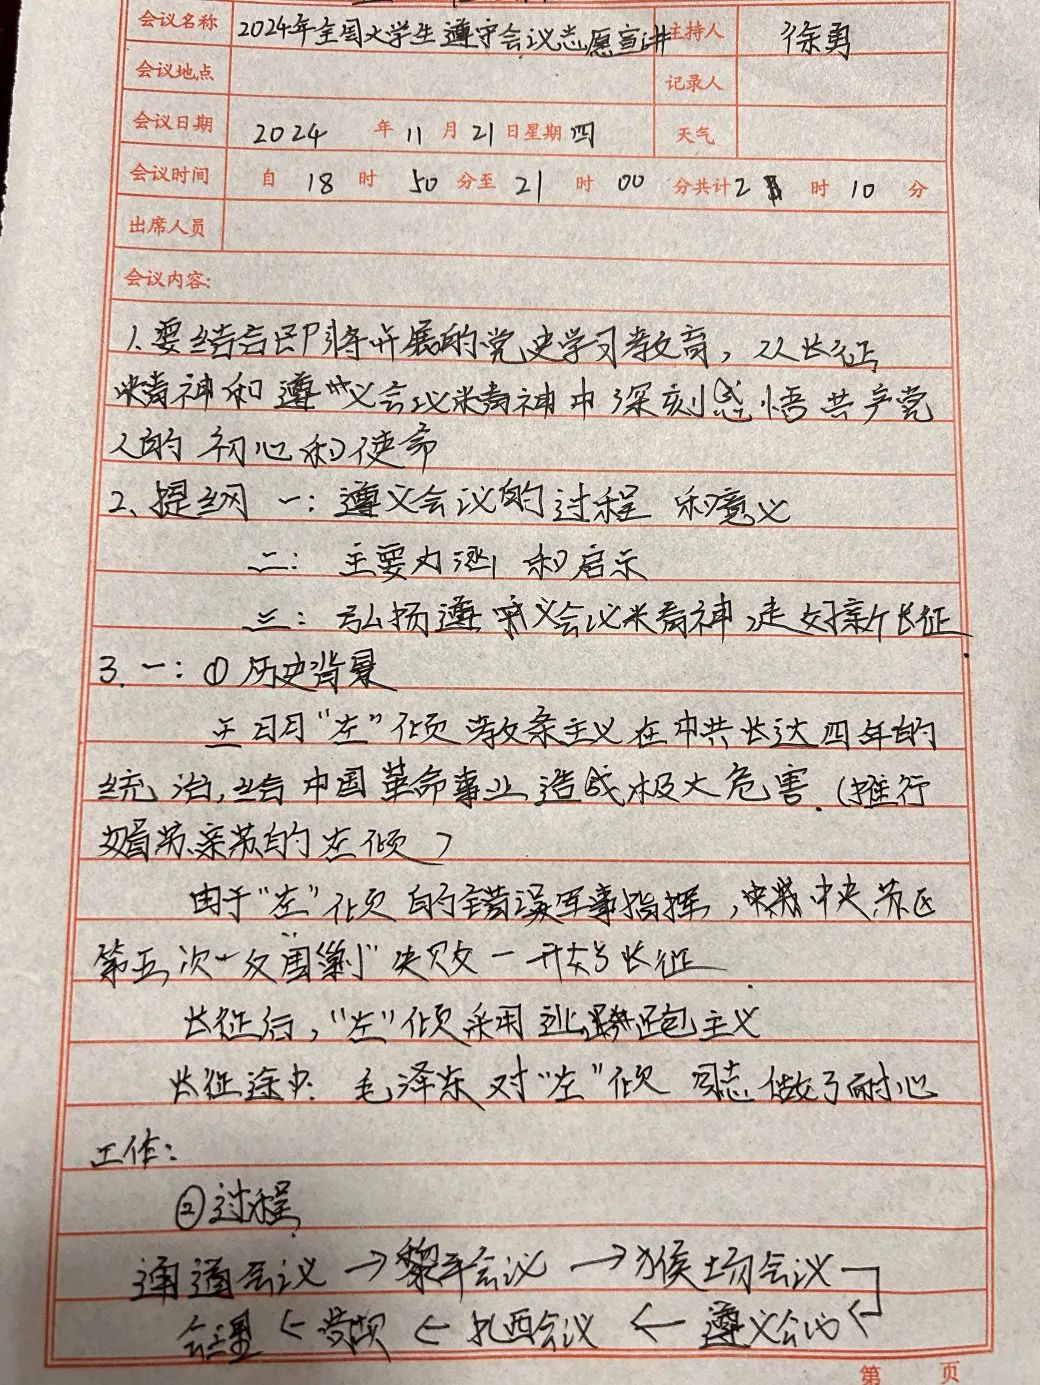 会议名称 2024年全国大学生遵守会议志愿宣讲 主持人 徐勇
会议地点 记录人
会议日期 2024 年 11 月 21 日星期 四 天气
会议时间 自 18 时 50 分至 21 时 00 分共计 2 时 10 分
出席人员
会议内容:
1. 要结合即将开展的党史学习教育，从长征
精神和遵义会议精神中深刻感悟共产党
人的初心和使命
2、提纲 一：遵义会议的过程 和意义
二： 主要内涵 和启示
三： 弘扬遵义会议精神，走好新长征.
3. 一：① 历史背景
王明“左”倾 教条主义在中共长达四年的
统治，给中国革命事业造成极大危害.（推行
媚苏亲苏的左倾）
由于“左”倾的错误军事指挥，中央苏区
第五次“反围剿”失败一开始长征.
长征后，“左”倾采用逃跑主义
长征途中：毛泽东对“左”倾 同志 做了耐心
工作：
②过程
通道会议 → 黎平会议 → 猴场会议
会理 ← 苟坝 ← 扎西会议 ← 遵义会议
第 页